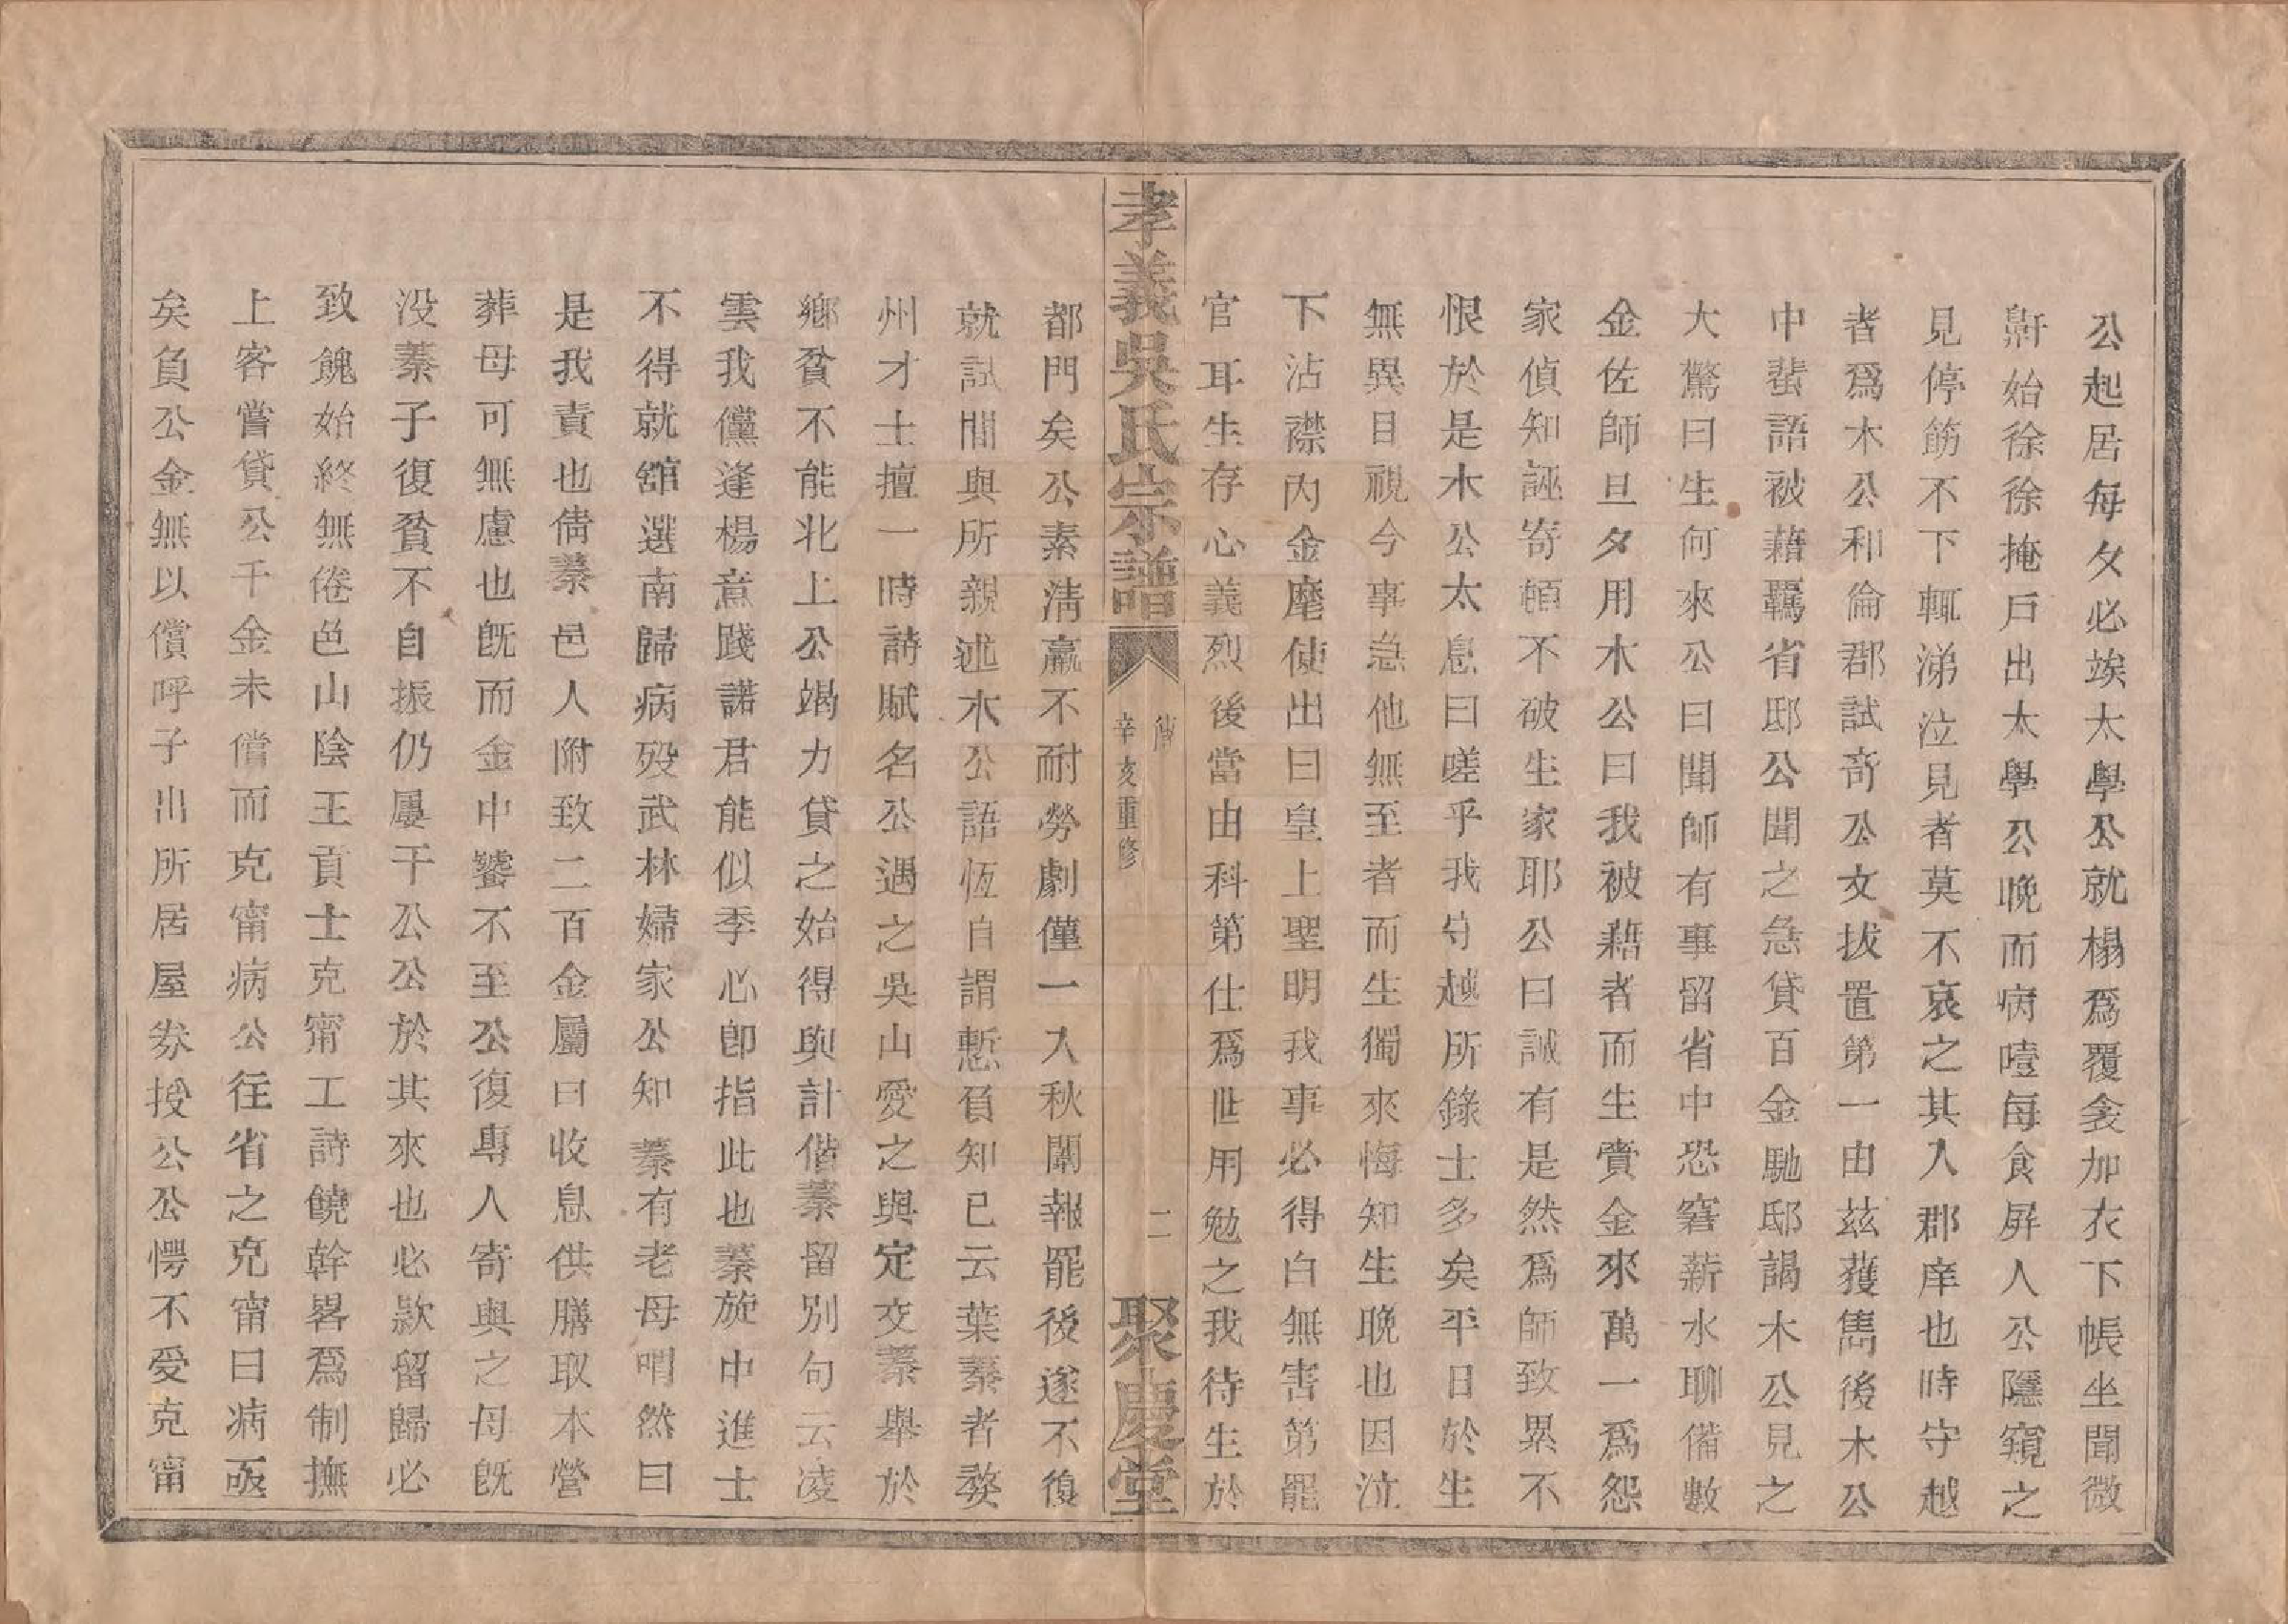 公起居每夕必竢太學公就榻爲覆衾加衣下帳坐聞微
鼾始徐徐掩戶出太學公晚而病噎每食屛人公隱窺之
見停筯不下輒涕泣見者莫不哀之其入郡庠也時守越
者爲木公和倫郡試奇公文拔置第一由玆獲雋後木公
中蜚語被藉羈省邸公聞之急貸百金馳邸謁木公見之
大驚曰生何來公曰聞師有事留省中恐窘薪水聊備數
金佐師旦夕用木公曰我被藉者而生賫金來萬一爲怨
家偵知誣寄頓不破生家耶公曰誠有是然爲師致累不
恨於是木公太息曰嗟乎我守越所錄士多矣平日於生
無異目視今事急他無至者而生獨來悔知生晚也因泣
下沾襟內金麾使出曰皇上聖明我事必得白無害第罷
官耳生存心義烈後當由科第仕爲世用勉之我待生於
孝義吳氏宗譜
傳
辛亥重修
二
聚慶堂
都門矣公素淸羸不耐勞劇僅一入秋闈報罷後遂不復
就試間與所親述木公語恆自謂慙負知已云葉蓁者婺
州才士擅一時詩賦名公遇之吳山愛之與定交蓁舉於
鄉貧不能北上公竭力貸之始得與計偕蓁留別句云凌
雲我儻逢楊意踐諾君能似季心卽指此也蓁旋中進士
不得就舘選南歸病歿武林婦家公知蓁有老母喟然曰
是我責也倩蓁邑人附致二百金屬曰收息供膳取本營
葬母可無慮也旣而金中饕不至公復專人寄與之母旣
没蓁子復貧不自振仍屢干公公於其來也必款留歸必
致餽始終無倦邑山陰王貢士克甯工詩饒幹畧爲制撫
上客嘗貸公千金未償而克甯病公往省之克甯曰病亟
矣負公金無以償呼子出所居屋劵授公公愕不受克甯